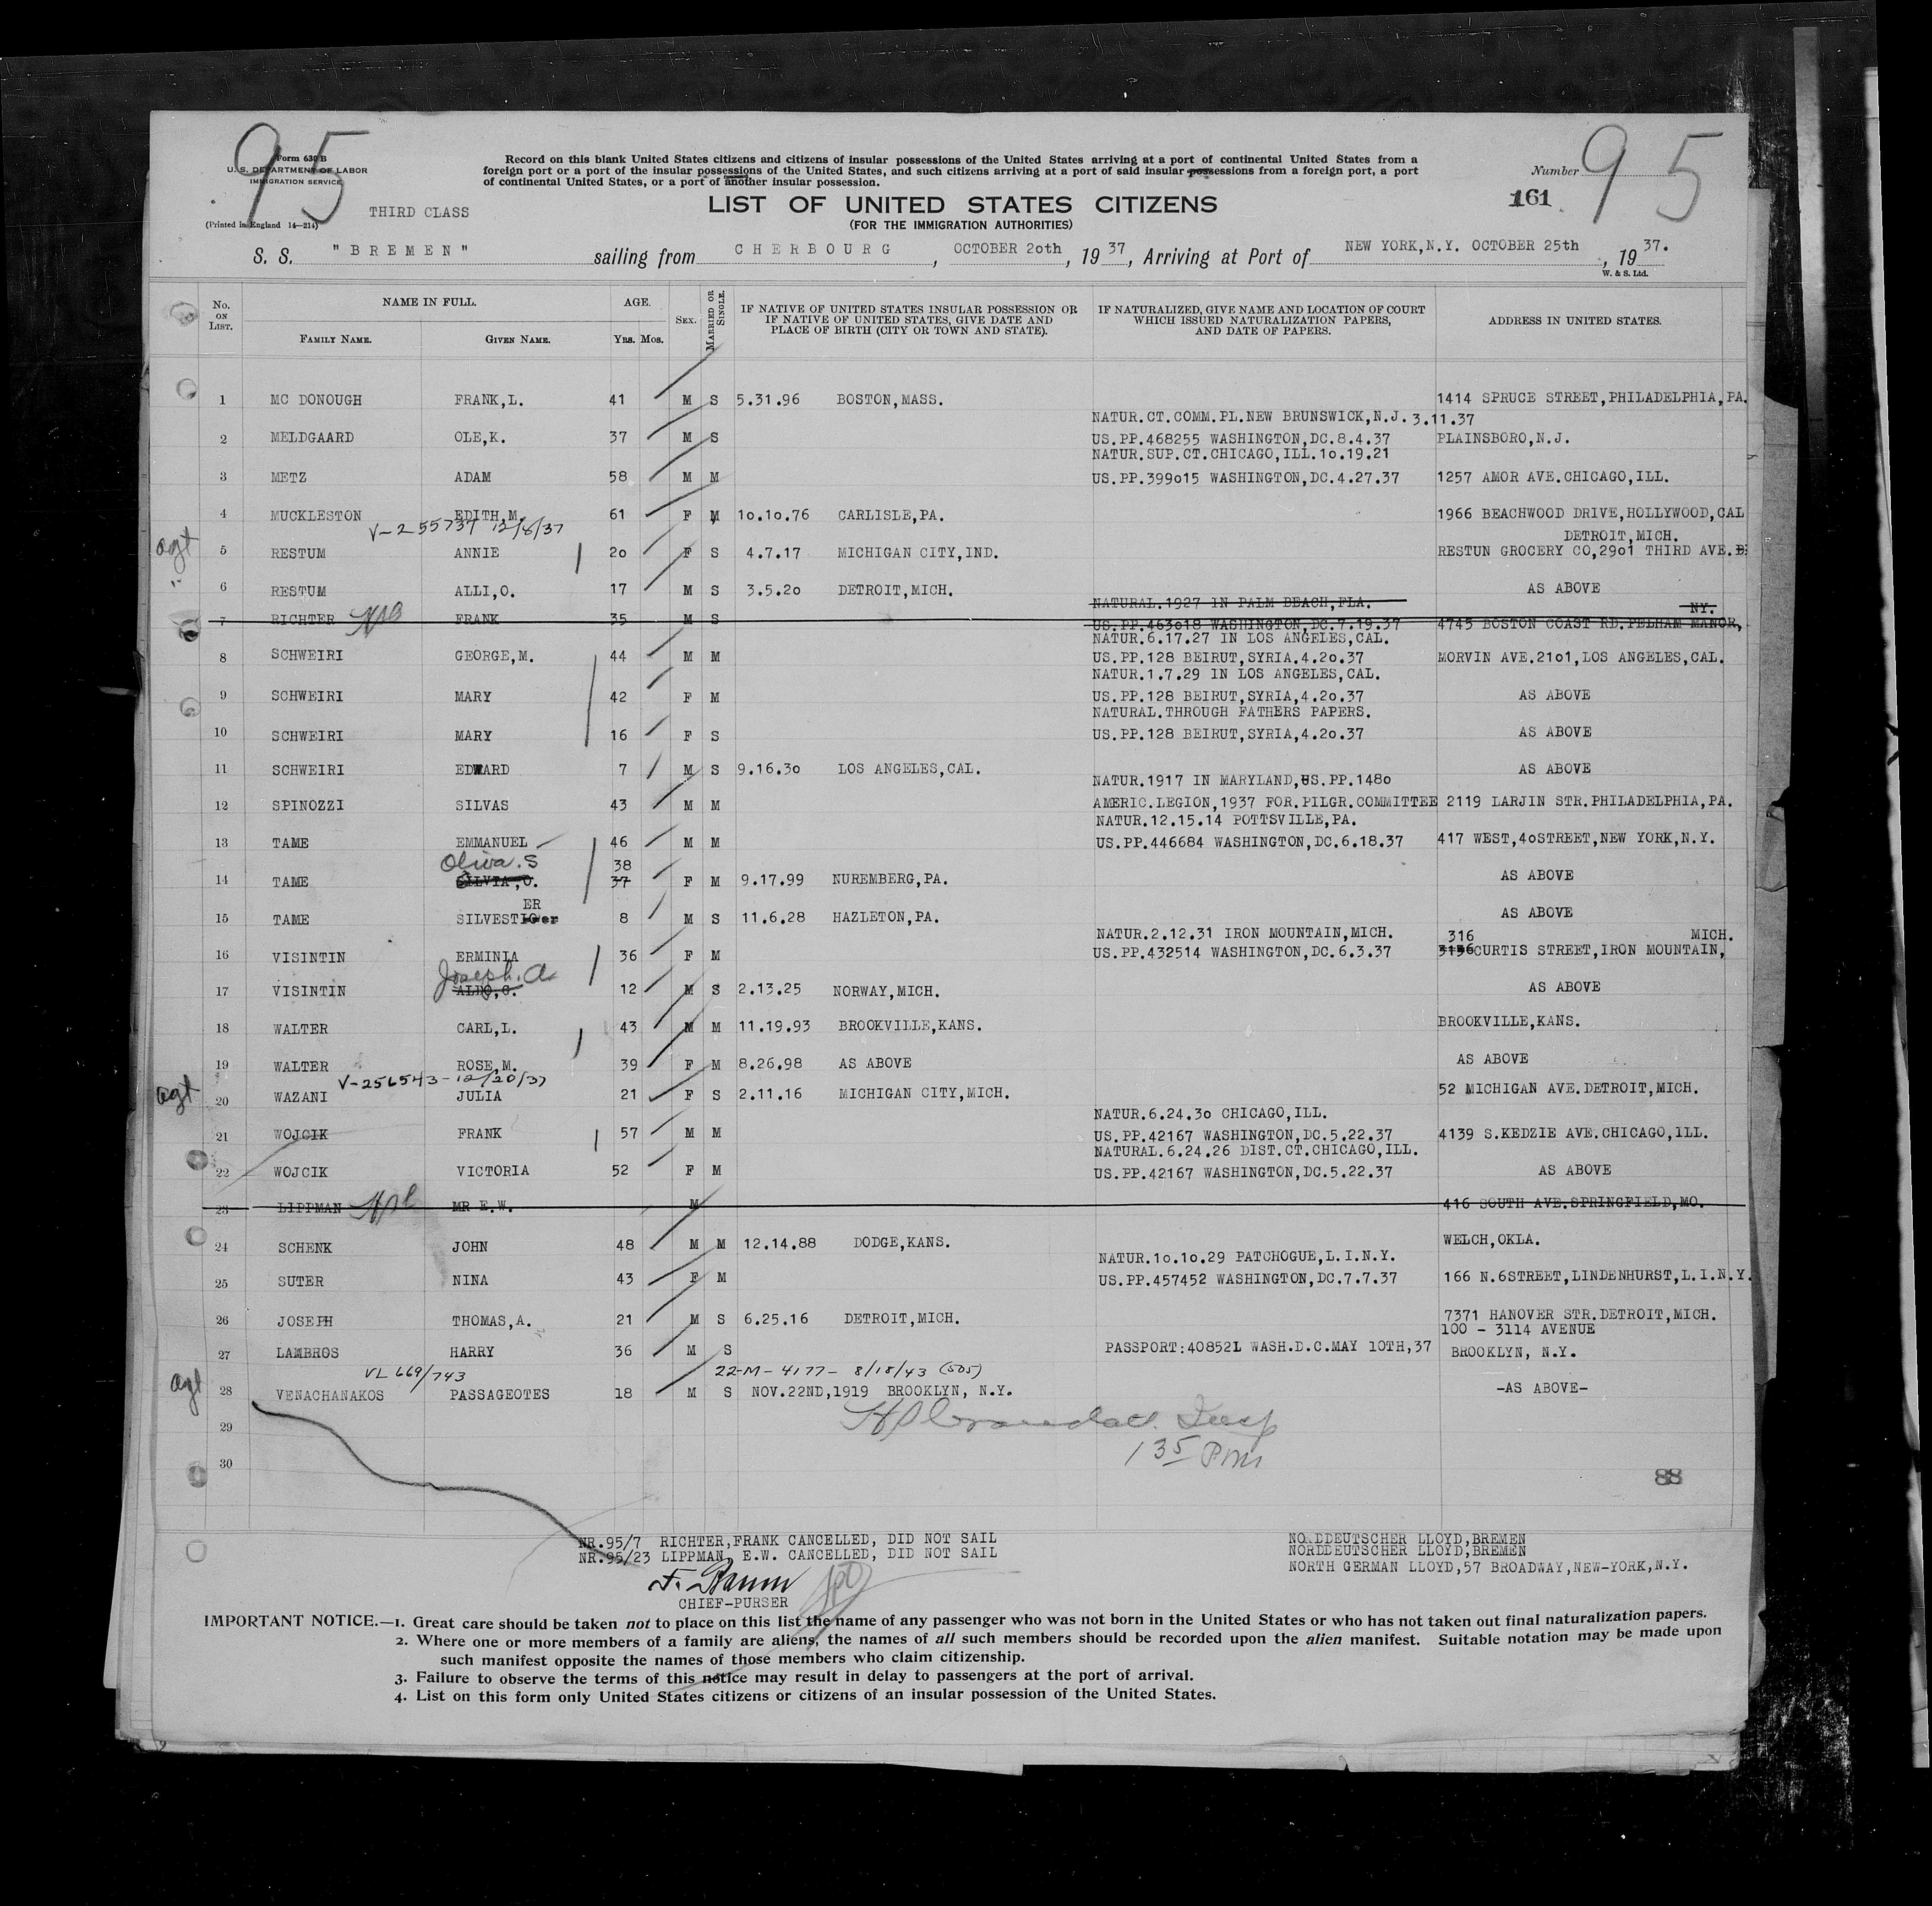 95
Form 630 B
U. S. DEPARTMENT OF LABOR
IMMIGRATION SERVICE
(Printed in England 14—214)
THIRD CLASS
Record on this blank United States citizens and citizens of insular possessions of the United States arriving at a port of continental United States from a
foreign port or a port of the insular possessions of the United States, and such citizens arriving at a port of said insular possessions from a foreign port, a port
of continental United States, or a port of another insular possession.
Number 95
161
LIST OF UNITED STATES CITIZENS
(FOR THE IMMIGRATION AUTHORITIES)
S. S. "BREMEN" sailing from CHERBOURG, OCTOBER 2oth, 1937, Arriving at Port of NEW YORK,N.Y. OCTOBER 25th, 1937.
W. & S. Ltd.
No. ON LIST. NAME IN FULL. FAMILY NAME. GIVEN NAME. AGE. YRS. MOS. SEX. MARRIED OR SINGLE. IF NATIVE OF UNITED STATES INSULAR POSSESSION OR IF NATIVE OF UNITED STATES, GIVE DATE AND PLACE OF BIRTH (CITY OR TOWN AND STATE). IF NATURALIZED, GIVE NAME AND LOCATION OF COURT WHICH ISSUED NATURALIZATION PAPERS, AND DATE OF PAPERS. ADDRESS IN UNITED STATES.
1 MC DONOUGH FRANK,L. 41 M S 5.31.96 BOSTON,MASS. 1414 SPRUCE STREET,PHILADELPHIA,PA.
NATUR.CT.COMM.PL.NEW BRUNSWICK,N.J.3.11.37
2 MELDGAARD OLE,K. 37 M S US.PP.468255 WASHINGTON,DC.8.4.37 PLAINSBORO,N.J.
NATUR.SUP.CT.CHICAGO,ILL.1o.19.21
3 METZ ADAM 58 M M US.PP.399o15 WASHINGTON,DC.4.27.37 1257 AMOR AVE.CHICAGO,ILL.
4 MUCKLESTON EDITH,M. 61 F M 1o.1o.76 CARLISLE,PA. 1966 BEACHWOOD DRIVE,HOLLYWOOD,CAL
V-255737 12/8/37
DETROIT,MICH.
agt 5 RESTUM ANNIE 2o F S 4.7.17 MICHIGAN CITY,IND. RESTUN GROCERY CO,29o1 THIRD AVE.
" 6 RESTUM ALLI,O. 17 M S 3.5.2o DETROIT,MICH. AS ABOVE
NATURAL.1927 IN PALM BEACH,FLA. NY.
7 RICHTER FRANK 35 M S US.PP.463o18 WASHINGTON,DC.7.19.37 4743 BOSTON COAST RD.PELHAM MANOR,
NATUR.6.17.27 IN LOS ANGELES,CAL.
8 SCHWEIRI GEORGE,M. 44 M M US.PP.128 BEIRUT,SYRIA.4.2o.37 MORVIN AVE.21o1,LOS ANGELES,CAL.
NATUR.1.7.29 IN LOS ANGELES,CAL.
9 SCHWEIRI MARY 42 F M US.PP.128 BEIRUT,SYRIA,4.2o.37 AS ABOVE
NATURAL.THROUGH FATHERS PAPERS.
10 SCHWEIRI MARY 16 F S US.PP.128 BEIRUT,SYRIA,4.2o.37 AS ABOVE
11 SCHWEIRI EDWARD 7 M S 9.16.3o LOS ANGELES,CAL. AS ABOVE
NATUR.1917 IN MARYLAND,US.PP.148o
12 SPINOZZI SILVAS 43 M M AMERIC.LEGION,1937 FOR.PILGR.COMMITTEE 2119 LARJIN STR.PHILADELPHIA,PA.
NATUR.12.15.14 POTTSVILLE,PA.
13 TAME EMMANUEL 46 M M US.PP.446684 WASHINGTON,DC.6.18.37 417 WEST,4oSTREET,NEW YORK,N.Y.
Oliva.S 38
14 TAME SILVIA,O. 37 F M 9.17.99 NUREMBERG,PA. AS ABOVE
ER
15 TAME SILVEST 8 M S 11.6.28 HAZLETON,PA. AS ABOVE
NATUR.2.12.31 IRON MOUNTAIN,MICH. 316 MICH.
16 VISINTIN ERMINIA 36 F M US.PP.432514 WASHINGTON,DC.6.3.37 3136 CURTIS STREET,IRON MOUNTAIN,
Joseph.A
17 VISINTIN ALDO,G. 12 M S 2.13.25 NORWAY,MICH. AS ABOVE
18 WALTER CARL,L. 43 M M 11.19.93 BROOKVILLE,KANS. BROOKVILLE,KANS.
19 WALTER ROSE,M. 39 F M 8.26.98 AS ABOVE AS ABOVE
V-256543-12/20/37
agt 20 WAZANI JULIA 21 F S 2.11.16 MICHIGAN CITY,MICH. 52 MICHIGAN AVE.DETROIT,MICH.
NATUR.6.24.3o CHICAGO,ILL.
21 WOJCIK FRANK 57 M M US.PP.42167 WASHINGTON,DC.5.22.37 4139 S.KEDZIE AVE.CHICAGO,ILL.
NATURAL.6.24.26 DIST.CT.CHICAGO,ILL.
22 WOJCIK VICTORIA 52 F M US.PP.42167 WASHINGTON,DC.5.22.37 AS ABOVE
23 LIPPMAN MR E.W. M 416 SOUTH AVE.SPRINGFIELD,MO.
24 SCHENK JOHN 48 M M 12.14.88 DODGE,KANS. WELCH,OKLA.
NATUR.1o.1o.29 PATCHOGUE,L.I.N.Y.
25 SUTER NINA 43 F M US.PP.457452 WASHINGTON,DC.7.7.37 166 N.6STREET,LINDENHURST,L.I.N.Y.
26 JOSEPH THOMAS,A. 21 M S 6.25.16 DETROIT,MICH. 7371 HANOVER STR.DETROIT,MICH.
100 - 3114 AVENUE
27 LAMBROS HARRY 36 M S PASSPORT:40852L WASH.D.C.MAY 10TH,37 BROOKLYN, N.Y.
VL 669/743 22-M-4177- 8/18/43 (505)
agt 28 VENACHANAKOS PASSAGEOTES 18 M S NOV.22ND,1919 BROOKLYN, N.Y. -AS ABOVE-
29
30
135 PM
88
NR.95/7 RICHTER,FRANK CANCELLED, DID NOT SAIL
NR.95/23 LIPPMAN, E.W. CANCELLED, DID NOT SAIL
CHIEF-PURSER
NORDDEUTSCHER LLOYD,BREMEN
NORDDEUTSCHER LLOYD,BREMEN
NORTH GERMAN LLOYD,57 BROADWAY,NEW-YORK,N.Y.
IMPORTANT NOTICE.—1. Great care should be taken not to place on this list the name of any passenger who was not born in the United States or who has not taken out final naturalization papers.
2. Where one or more members of a family are aliens, the names of all such members should be recorded upon the alien manifest. Suitable notation may be made upon
such manifest opposite the names of those members who claim citizenship.
3. Failure to observe the terms of this notice may result in delay to passengers at the port of arrival.
4. List on this form only United States citizens or citizens of an insular possession of the United States.